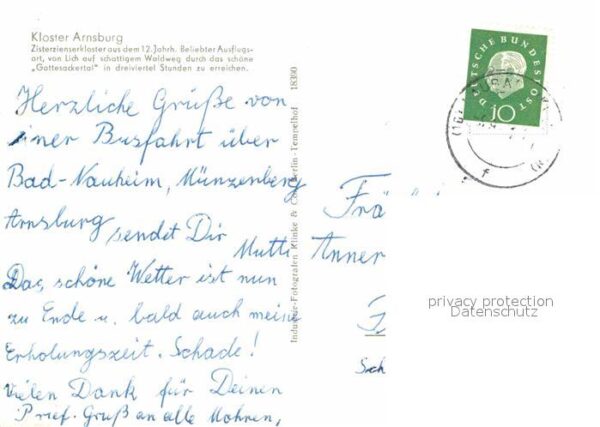 Kloster Arnsburg
Zisterzienserkloster aus dem 12. Jahrh. Beliebter Ausflugs-
ort, von Lich auf schattigem Waldweg durch das schöne
„Gottesackertal" in dreiviertel Stunden zu erreichen.
Herzliche Grüße von
einer Busfahrt über
Bad-Nauheim, Münzenberg
Arnsburg sendet Dir
Mutti
Das schöne Wetter ist nun
zu Ende u. bald auch meine
Erholungszeit. Schade!
Vielen Dank für Deinen
Brief. Gruß an alle Mohren,
Industrie-Fotografen Klinke & Co. Berlin-Tempelhof 18300
DEUTSCHE BUNDESPOST
10
Frä
Anner
Sch
privacy protection
Datenschutz